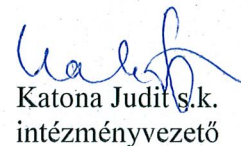 Katona Judit s.k.
intézményvezető